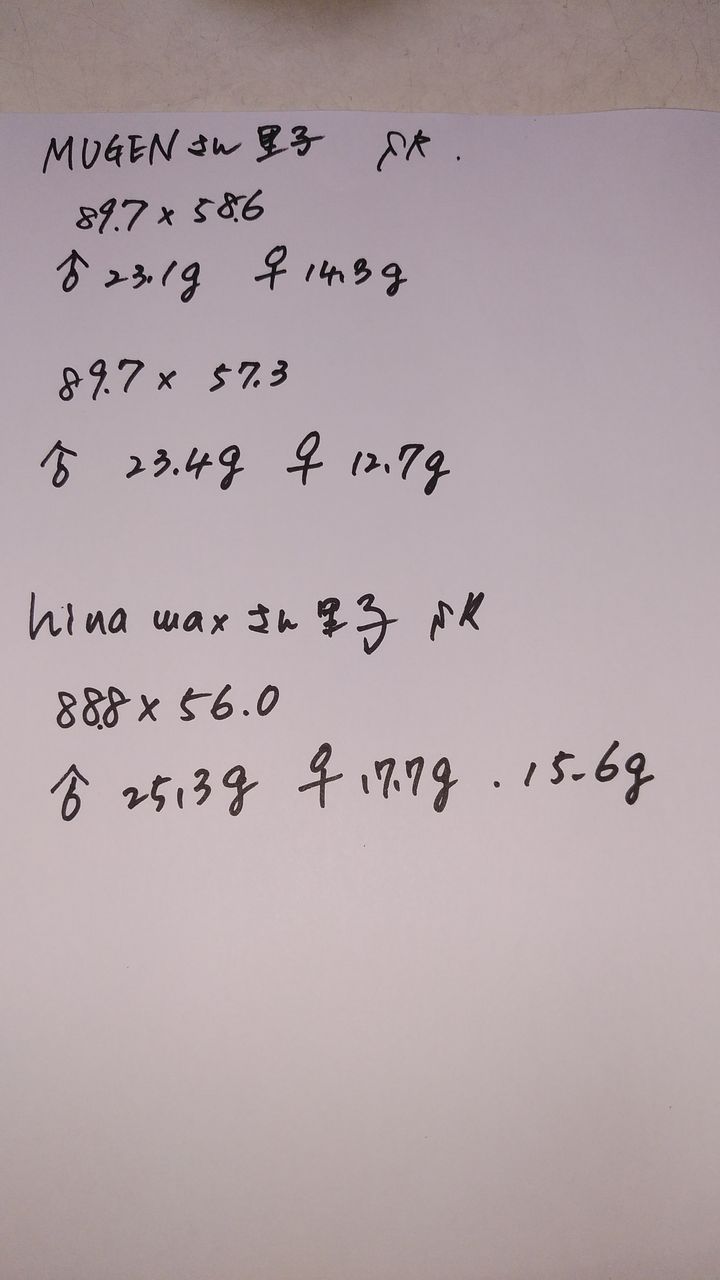 MUGENさん里子 SR.
89.7 × 58.6
♂ 23.1g ♀ 14.3g
89.7 × 57.3
♂ 23.4g ♀ 12.7g
hina maxさん里子 SR
88.8 × 56.0
♂ 25.3g ♀ 17.7g . 15.6g